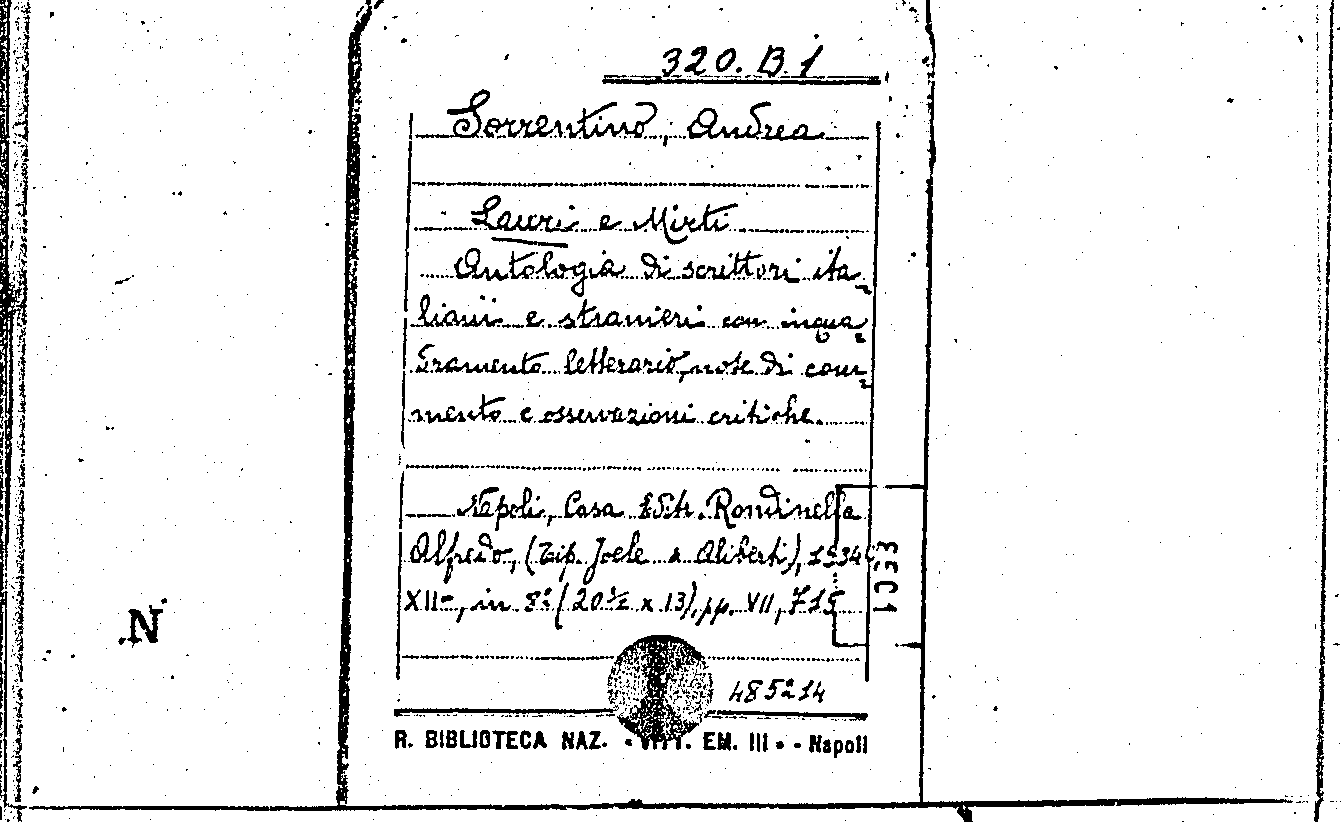 320. B. 1
Sorrentino, Andrea
Lauri e Mirti
Antologia di scrittori ita-
liani e stranieri con inqua-
dramento letterario, note di com-
mento e osservazioni critiche.
Napoli, Casa Edit. Rondinella
Alfredo, (Tip. Joele & Aliberti), 1934
XII-, in 8º (20 ½ x 13), pp. VII, 715
485214
R. BIBLIOTECA NAZ. «VITT. EM. III» - Napoli
N